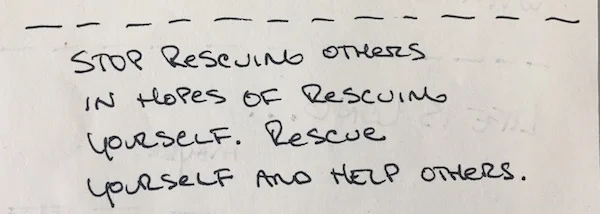 STOP RESCUING OTHERS
IN HOPES OF RESCUING
YOURSELF. RESCUE
YOURSELF AND HELP OTHERS.